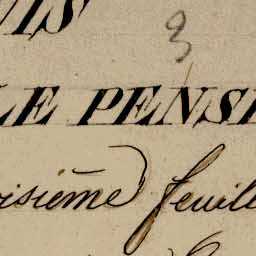 UIS
3
LE PENSI
oisième feuille